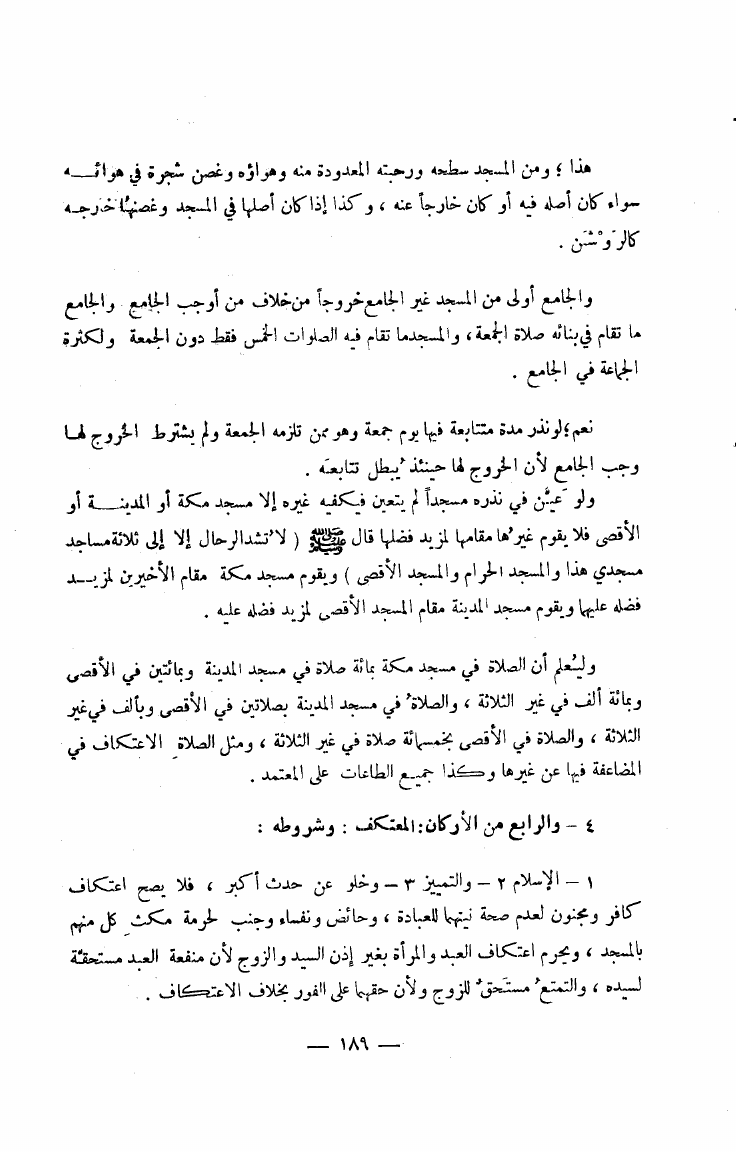 هذا ؛ ومن المسجد سطحه ورحبته المعدودة منه وهواؤه وغصن شجرة في هوائـــه
سواء كان أصله فيه أو كان خارجاً عنه ، وكذا إذا كان أصلها في المسجد وغصنها خارجه
كالرَوْشَن .
والجامع أولى من المسجد غير الجامع خروجاً من خلاف من أوجب الجامع والجامع
ما تقام في بنائه صلاة الجمعة ، والمسجد ما تقام فيه الصلوات الخمس فقط دون الجمعة ولكثرة
الجماعة في الجامع .
نعم ؛ لو نذر مدة متتابعة فيها يوم جمعة وهو ممن تلزمه الجمعة ولم يشترط الخروج لهـا
وجب الجامع لأن الخروج لها حينئذ يُبطل تتابعَه .
ولو عَيَّن في نذره مسجداً لم يتعين فيكفيه غيره إلا مسجد مكة أو المدينـــة أو
الأقصى فلا يقوم غيرُها مقامها لمزيد فضلها قال ﷺ ( لا تُشد الرحال إلا إلى ثلاثة مساجد
مسجدي هذا والمسجد الحرام والمسجد الأقصى ) ويقوم مسجد مكة مقام الأخيرين لمزيــد
فضله عليها ويقوم مسجد المدينة مقام المسجد الأقصى لمزيد فضله عليه .
وليُعلم أن الصلاة في مسجد مكة بمائة صلاة في مسجد المدينة وبمائتين في الأقصى
وبمائة ألف في غير الثلاثة ، والصلاةُ في مسجد المدينة بصلاتين في الأقصى وبألف في غير
الثلاثة ، والصلاة في الأقصى بخمسمائة صلاة في غير الثلاثة ، ومثل الصلاةِ الاعتكاف في
المضاعفة فيها عن غيرها وكذا جميع الطاعات على المعتمد .
٤ – والرابع من الأركان : المعتكف : وشروطه :
١ – الإسلام ٢ – والتمييز ٣ – وخلو عن حدث أكبر ، فلا يصح اعتكاف
كافر ومجنون لعدم صحة نيتهما للعبادة ، وحائض ونفساء وجنب لحرمة مكثِ كل منهم
بالمسجد ، ويحرم اعتكاف العبد والمرأة بغير إذن السيد والزوج لأن منفعة العبد مستحقة
لسيده ، والتمتعُ مستَحقٌ للزوج ولأن حقهما على الفور بخلاف الاعتكاف .
— ١٨٩ —